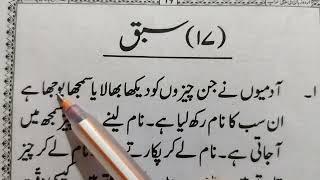 (۱۷) سبق
۱۔ آدمیوں نے جن چیزوں کو دیکھا بھالا یا سمجھا بوجھا ہے
ان سب کا نام رکھ لیا ہے۔ نام لینے سے سمجھ میں
آجاتی ہے۔ نام لے کر پکارتے نام لے کر چیز